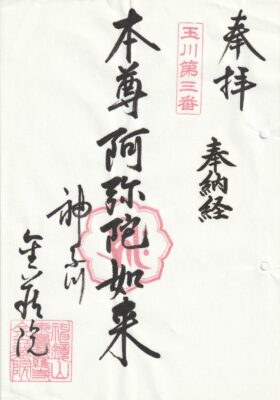 奉拝
玉川第三番
奉納経
本尊阿弥陀如来
神奈川
金蔵院